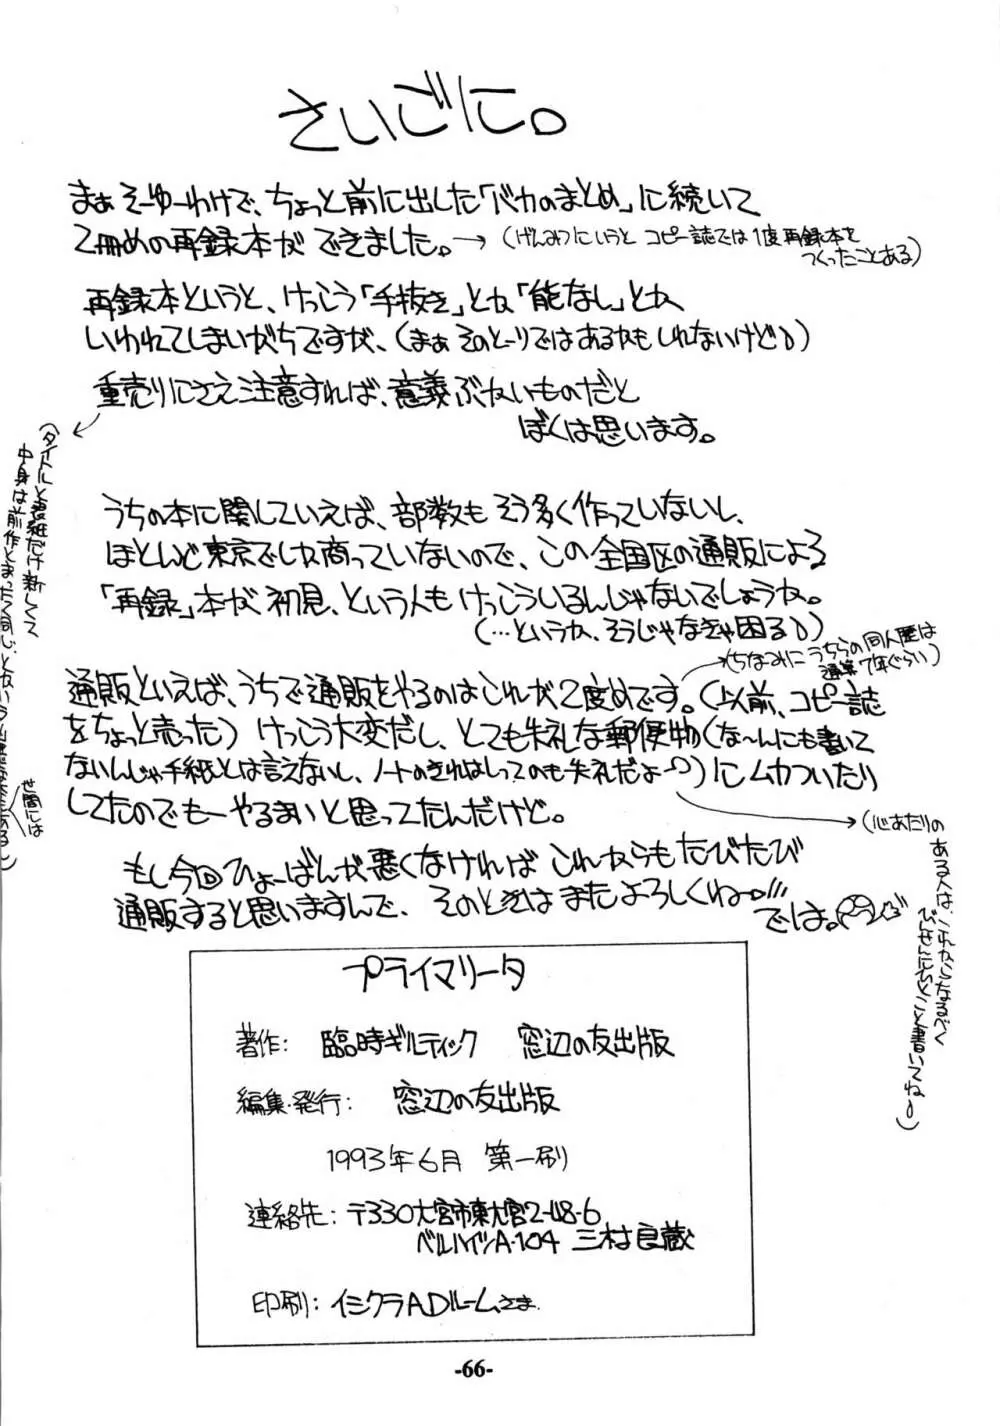 さいごに。
まぁそーゆーわけで、ちょっと前に出した「バカのまとめ」に続いて
2冊めの再録本ができました。→(げんみつにいうと コピー誌では1度再録本を
つくったことある)
再録本というと、けっこう「手抜き」とか「能なし」とか
いわれてしまいがちですが、(まぁそのとーりではあるかもしれないけど)
重売りにさえ注意すれば、意義ぶかいものだと
ぼくは思います。
(タイトルと表紙だけ新しくて
中身は前作とまったく同じ、とかいう
世間には
うちの本に関していえば、部数もそう多く作っていないし、
ほとんど東京でしか商っていないので、この全国区の通販による
「再録」本が初見、という人もけっこういるんじゃないでしょうか。
(…というか、そうじゃなきゃ困る)
(ちなみにうちらの同人歴は
通算7年ぐらい)
通販といえば、うちで通販をやるのはこれが2度めです。(以前、コピー誌
をちょっと売った)けっこう大変だし、とても失礼な郵便物(な〜んにも書いて
ないんじゃ手紙とは言えないし、ノートのきれはしってのも失礼だよー)にムカついたり
してたのでもーやるまいと思ってたんだけど。
→(心あたりの
ある人は、これからなるべく
びんせんにひとこと書いてね)
もし今回ひょーばんが悪くなければ これからもたびたび
通販すると思いますんで、そのときはまたよろしくねー!!!
では。
プライマリータ
著作: 臨時ギルティック 窓辺の友出版
編集・発行: 窓辺の友出版
1993年6月 第一刷
連絡先: 〒330大宮市東大宮2-48-6
ベルハイツA-104 三村良蔵
印刷: イシクラADルームさま
-66-